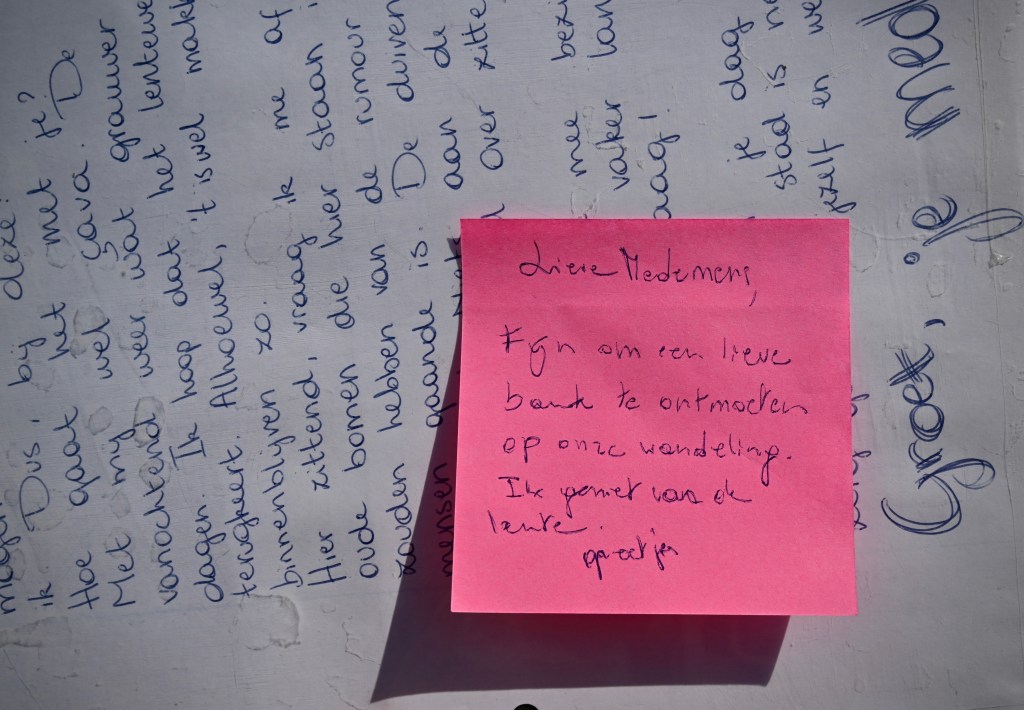 megen
ik Dus, bij deze:
Hoe gaat het met je?
Met mij wel çava. De
vanochtend weer wat grauwer
dagen. Ik hoop dat het lentewe
terugkeert. Alhoewel, 't is wel makk
binnenblijven zo.
Hier zittend, vraag ik me af
oude bomen die hier staan
zouden hebben van de rumour
mensen gaande is. De duiven
aan de
over zitte
me bezi
vaker lan
aag!
je dag
stad is
jezelf en we
Groet, je Med
Lieve Medemens,
Fijn om een lieve
bank te ontmoeten
op onze wandeling.
Ik geniet van de
lente.
groetjes